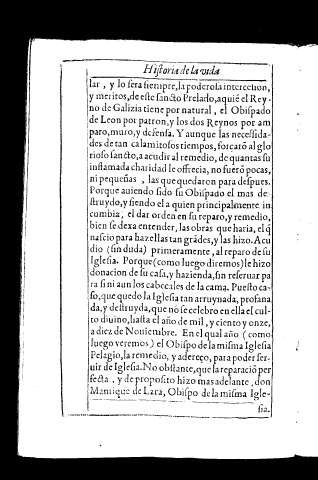 Historia de la vida
lar, y lo sera siempre, la poderosa intercesion,
y meritos, de este sancto Prelado, aquiē el Rey-
no de Galizia tiene por natural, el Obispado
de Leon por patron, y los dos Reynos por am
paro, muro, y defensa. Y aunque las necessida-
des de tan calamitosos tiempos, forçarō al glo
rioso sancto, a acudir al remedio, de quantas su
inflamada charidad le offrecia, no fuerō pocas,
ni pequeñas, las que quedaron para despues.
Porque auiendo sido su Obispado el mas de-
struydo, y siendo el a quien principalmente in
cumbia, el dar orden en su reparo, y remedio,
bien se dexa entender, las obras que haria, el q̄
nascio para hazellas tan grādes, y las hizo. Acu
dio (sin duda) primeramente, al reparo de su
Iglesia. Porque (como luego diremos) le hizo
donacion de su casa, y hazienda, sin reseruar pa
ra si ni aun los cabeçales de la cama. Puesto ca-
so, que quedo la Iglesia tan arruynada, profana
da, y destruyda, que no se celebro en ella el cul-
to diuino, hasta el año de mil, y ciento y onze,
a diez de Nouiembre. En el qual año (como
luego veremos) el Obispo de la misma Iglesia
Pelagio, la remedio, y adereço, para poder ser-
uir de Iglesia. No obstante, que la reparaciō per
fecta, y de proposito hizo mas adelante, don
Manrique de Lara, Obispo de la misma Igle-
sia.